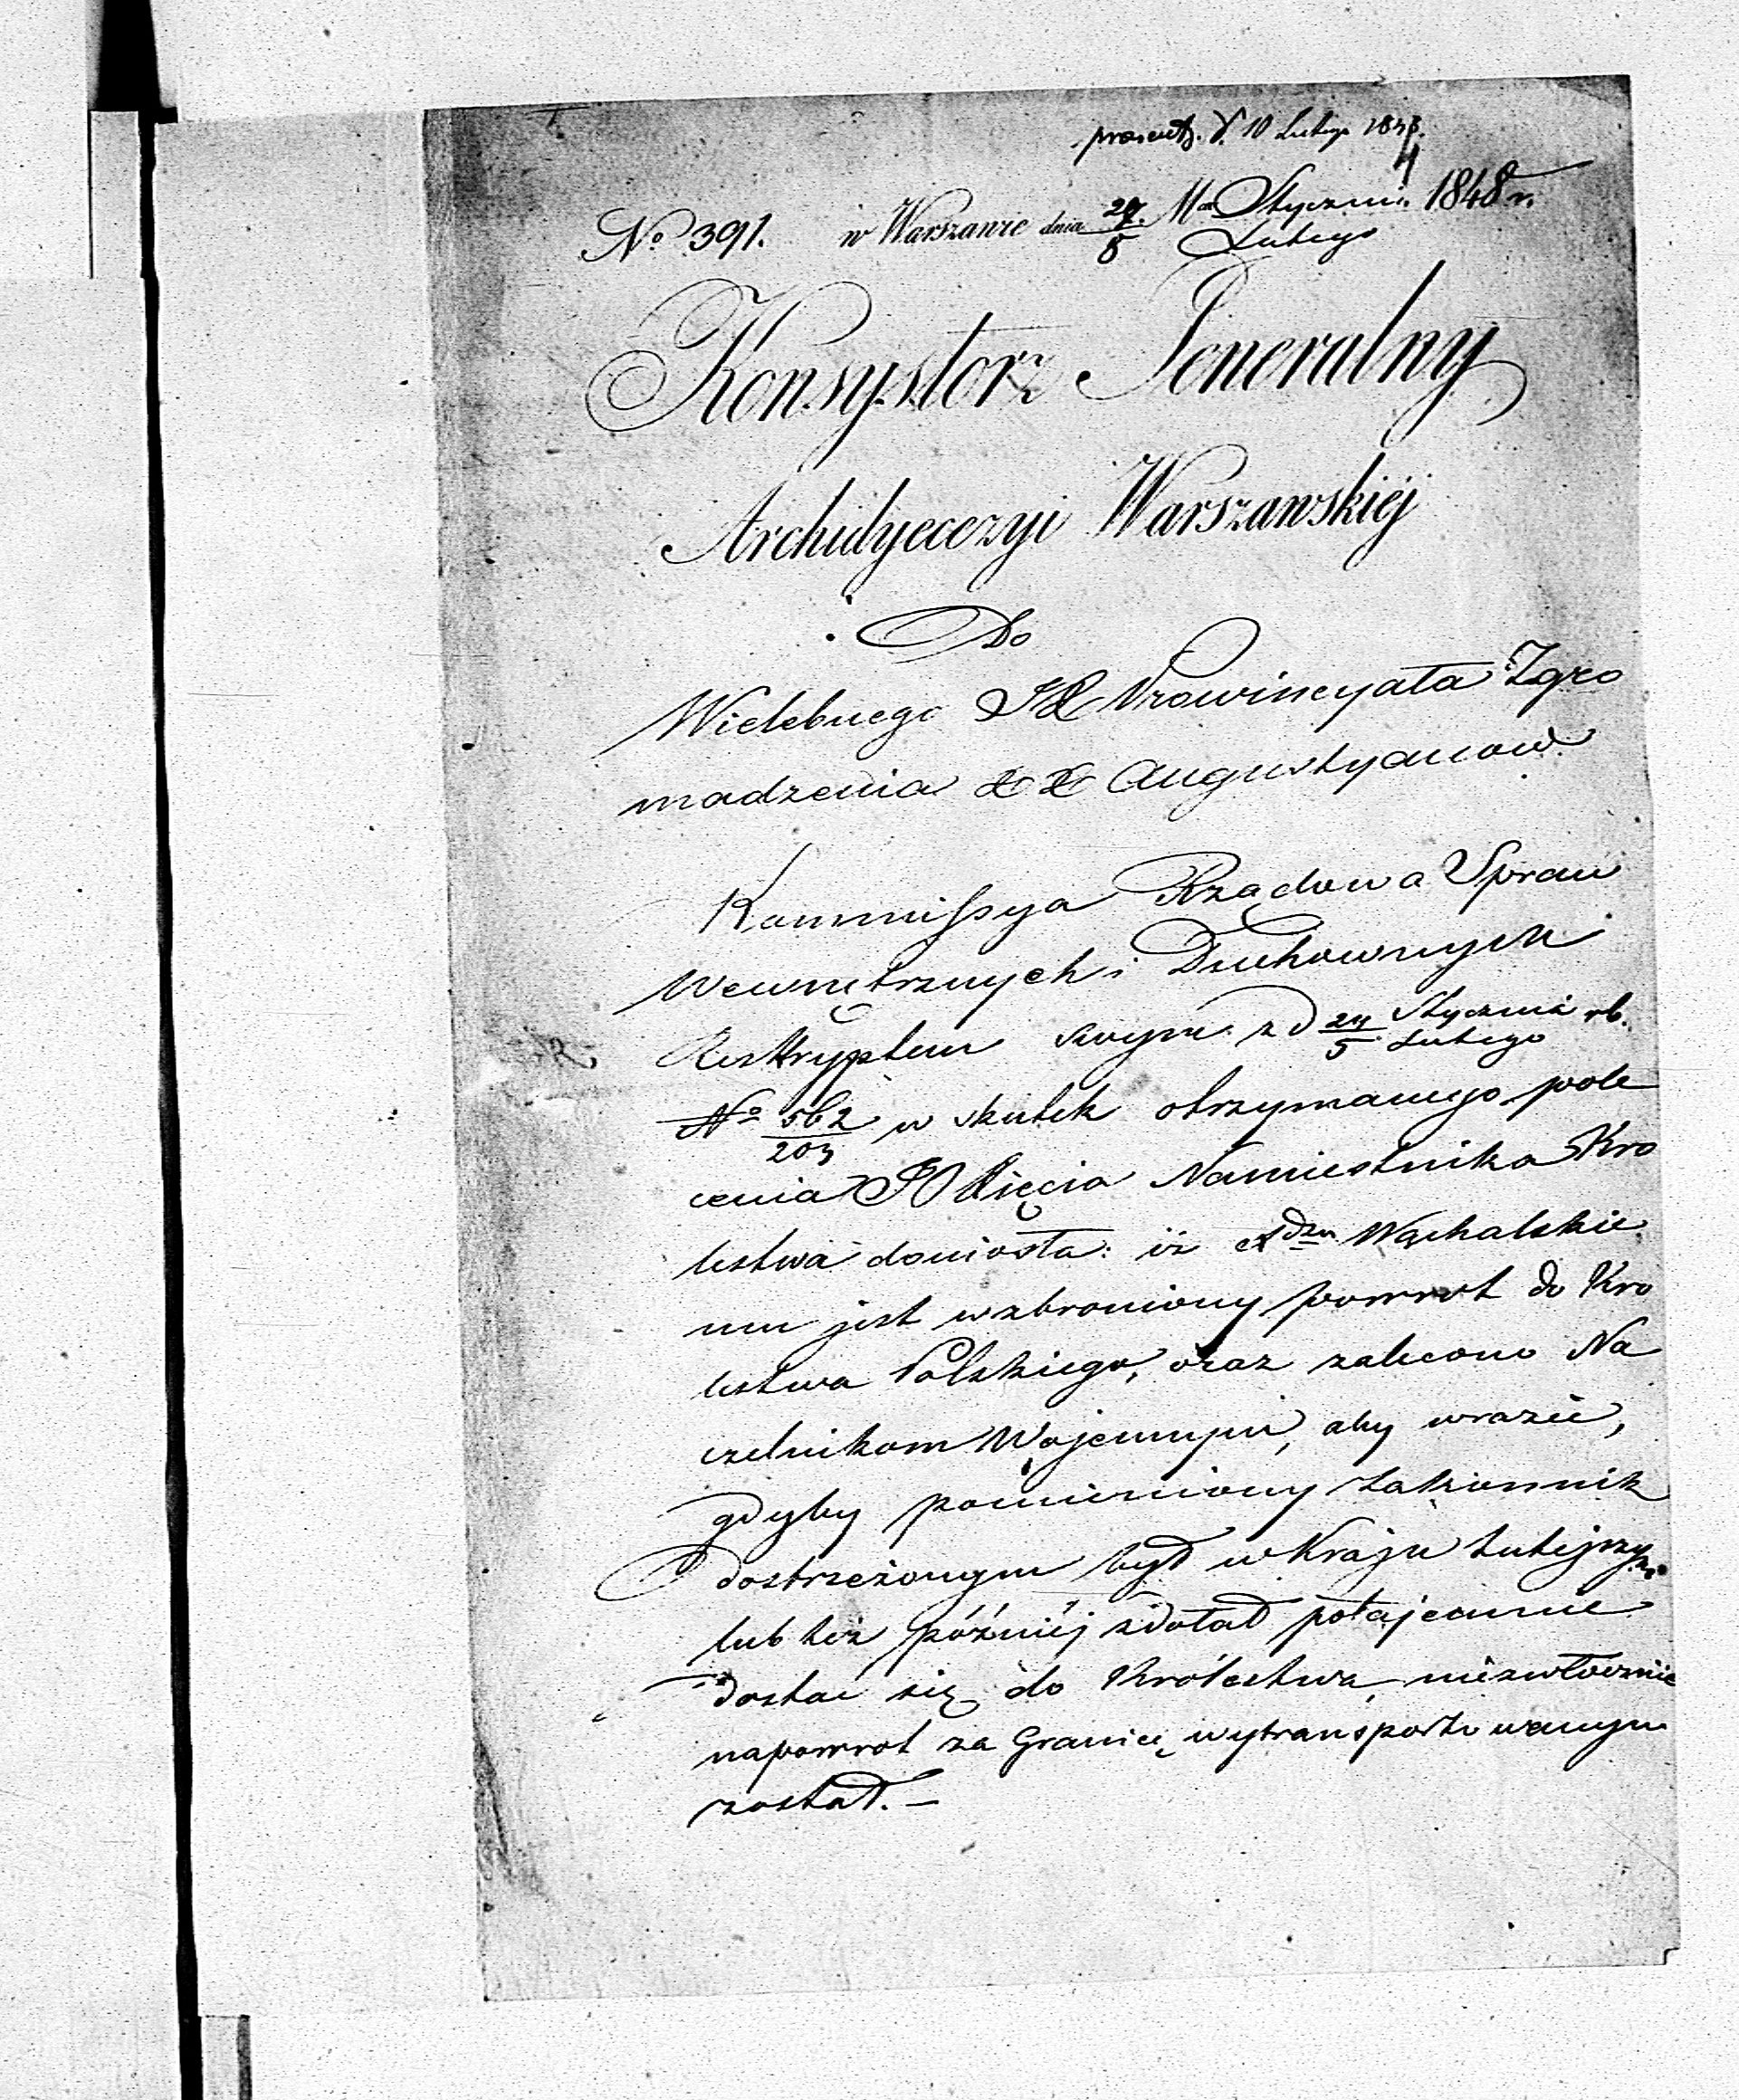 prasentz. d. 10 Lutego 1848.
No 391. w Warszawie dnia 27/8 Ma Stycznia/Lutego 1848 r.
Konsystorz Jeneralny
Archidyecezyi Warszawskiéj
Do
Wielebnego JX Prowincyała Zgro
madzenia XX Augustyanow
Kommissya Rządowa Spraw
Wewnętrznych i Duchownych
Reskryptem swym z d 24/5 Stycznia/Lutego rb.
No 562/203 w skutek otrzymanego pole
cenia JO Xięcia Namiestnika Kro
lestwa doniosła: iż Xdzu Wąchalskie
mu jest wzbroniony powrot do Kro
lestwa Polskiego, oraz zalecono Na
czelnikom Wojennym, aby wrazie,
gdyby pomieniony Zakonnik
dostrzeżonym był w Kraju tutejszym
lub też późniéj zdołał potajemnie
dostać się do Królestwa, niezwłocznie
napowrot za Granicę wytransportowanym
został. –